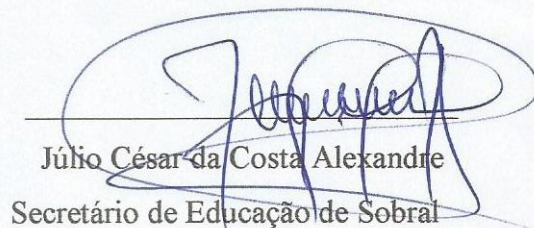 Júlio César da Costa Alexandre
Secretário de Educação de Sobral